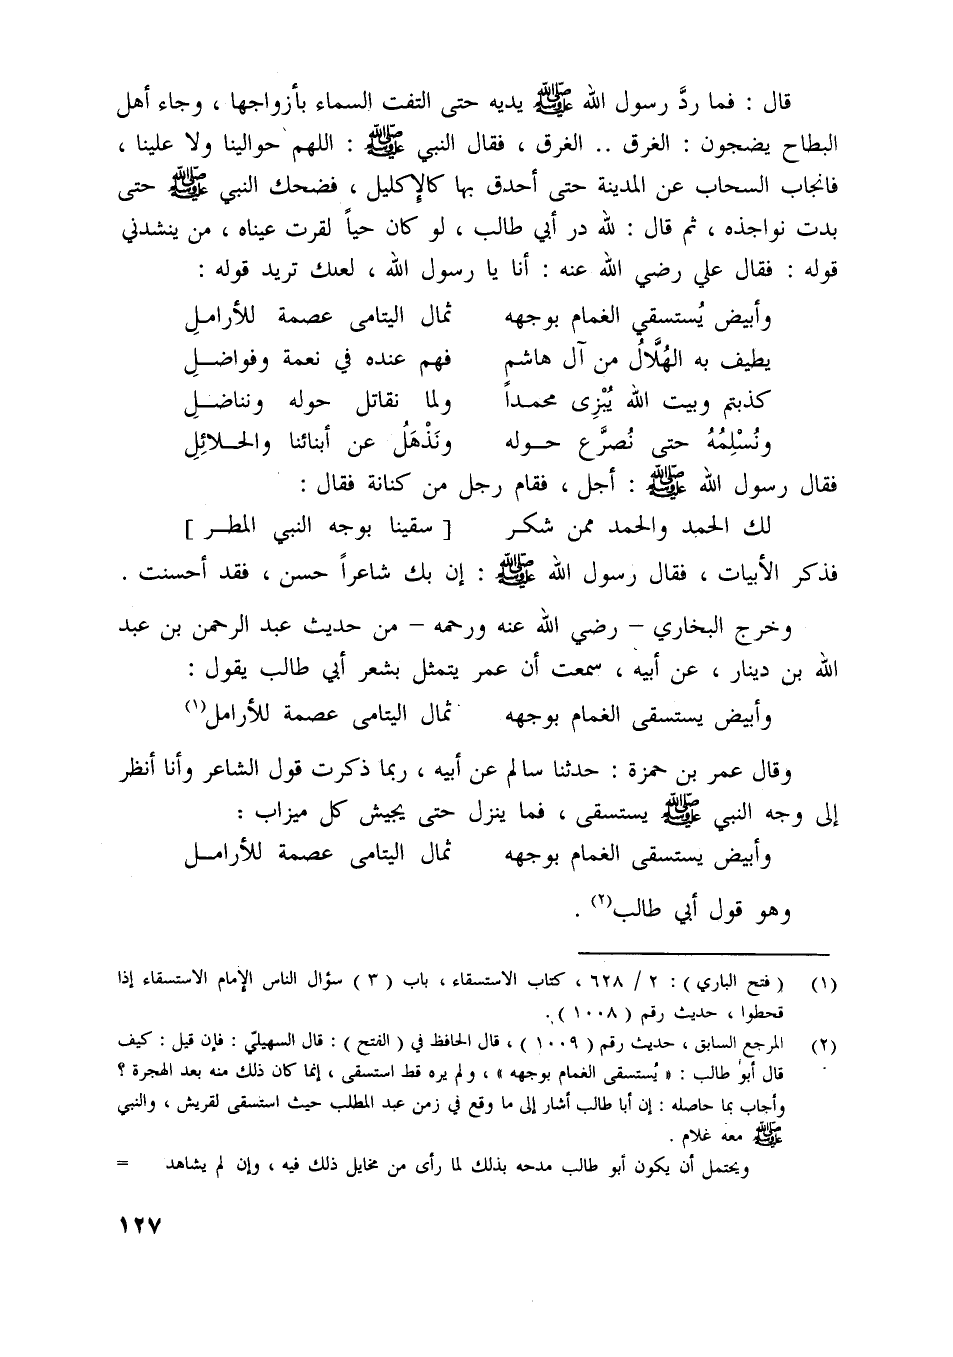 قال : فما ردَّ رسول الله ﷺ يديه حتى التفت السماء بأزواجها ، وجاء أهل
البطاح يضجون : الغرق .. الغرق ، فقال النبي ﷺ : اللهم حوالينا ولا علينا ،
فانجاب السحاب عن المدينة حتى أحدق بها كالإكليل ، فضحك النبي ﷺ حتى
بدت نواجذه ، ثم قال : لله در أبي طالب ، لو كان حياً لقرت عيناه ، من ينشدني
قوله : فقال علي رضي الله عنه : أنا يا رسول الله ، لعلك تريد قوله :
وأبيض يُستسقي الغمام بوجهه ثمال اليتامى عصمة للأراملِ
يطيف به الهُلَّالُ من آل هاشم فهم عنده في نعمة وفواضـلِ
كذبتم وبيت الله يُبْزِى محمـداً ولما نقاتل حوله ونناضـلِ
ونُسْلِمُهُ حتى نُصرَّع حـوله ونَذْهَلُ عن أبنائنا والحـلائِلِ
فقال رسول الله ﷺ : أجل ، فقام رجل من كنانة فقال :
لك الحمد والحمد ممن شكـر [ سقينا بوجه النبي المطـر ]
فذكر الأبيات ، فقال رسول الله ﷺ : إن بك شاعراً حسن ، فقد أحسنت .
وخرج البخاري – رضي الله عنه ورحمه – من حديث عبد الرحمن بن عبد
الله بن دينار ، عن أبيه ، سمعت أن عمر يتمثل بشعر أبي طالب يقول :
وأبيض يستسقى الغمام بوجهه ثمال اليتامى عصمة للأرامل(١)
وقال عمر بن حمزة : حدثنا سالم عن أبيه ، ربما ذكرت قول الشاعر وأنا أنظر
إلى وجه النبي ﷺ يستسقى ، فما ينزل حتى يجيش كل ميزاب :
وأبيض يستسقى الغمام بوجهه ثمال اليتامى عصمة للأرامـل
وهو قول أبي طالب(٢) .
(١) ( فتح الباري ) : ٢ / ٦٢٨ ، كتاب الاستسقاء ، باب ( ٣ ) سؤال الناس الإمام الاستسقاء إذا
قحطوا ، حديث رقم ( ١٠٠٨ ) .
(٢) المرجع السابق ، حديث رقم ( ١٠٠٩ ) ، قال الحافظ في ( الفتح ) : قال السهيليّ : فإن قيل : كيف
قال أبو طالب : « يُستسقى الغمام بوجهه » ، ولم يره قط استسقى ، إنما كان ذلك منه بعد الهجرة ؟
وأجاب بما حاصله : إن أبا طالب أشار إلى ما وقع في زمن عبد المطلب حيث استسقى لقريش ، والنبي
ﷺ معه غلام .
ويحتمل أن يكون أبو طالب مدحه بذلك لما رأى من مخايل ذلك فيه ، وإن لم يشاهد =
١٢٧